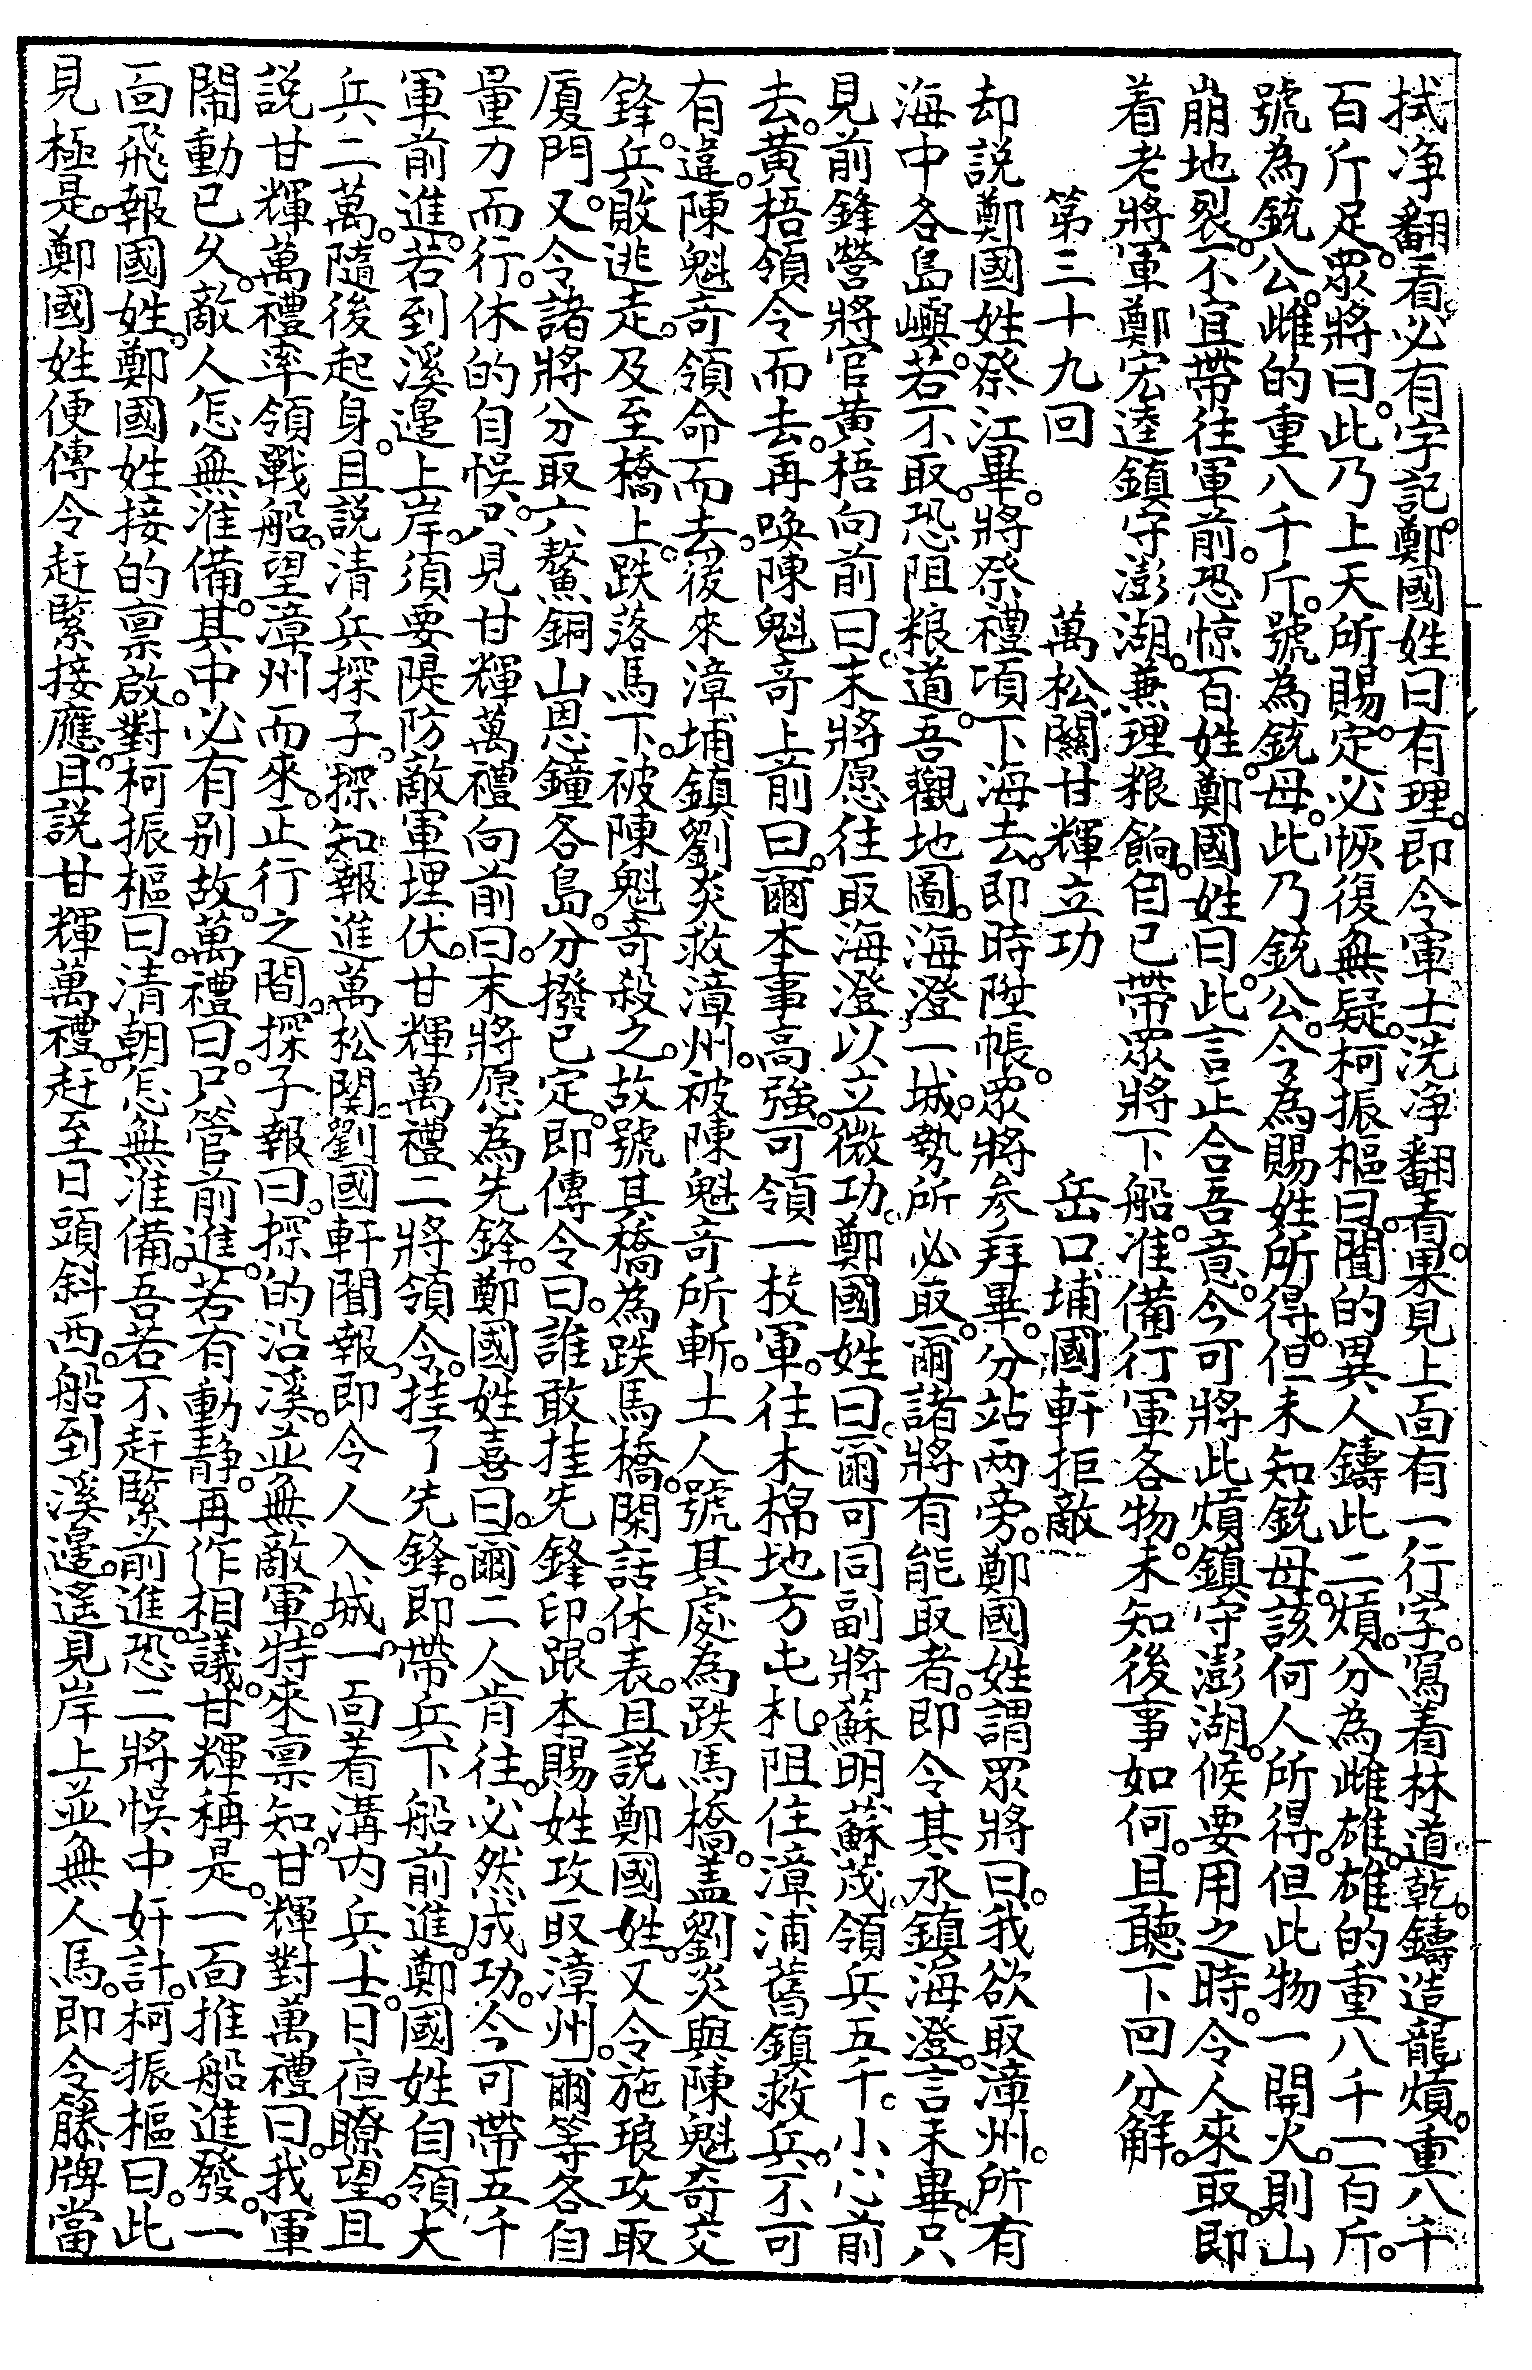 拭净翻看必有字記。鄭國姓曰有理。即令軍士洗净翻看。果見上面有一行字。寫着林道乾鑄造龍熕。重八千
百斤足。眾將曰。此乃上天所賜。定必恢復無疑。柯振樞曰。聞的異人鑄此二熕。分為雌雄。雄的重八千一百斤。
號為銃公。雌的重八千斤。號為銃母。此乃銃公。今為賜姓所得。但未知銃母。該何人所得。但此物一開火。則山
崩地裂。不宜帶往軍前。恐惊百姓。鄭國姓曰。此言正合吾意。今可將此熕鎮守澎湖。候要用之時。令人來取。即
着老將軍鄭宏逵鎮守澎湖。兼理粮餉。自己帶眾將下船。准備行軍各物。未知後事如何。且聽下回分解。
第三十九回　萬松關甘輝立功　岳口埔國軒拒敵
却説鄭國姓祭江畢。將祭禮項下海去。即時陞帳。眾將參拜畢。分站兩旁。鄭國姓謂眾將曰。我欲取漳州。所有
海中各島嶼。若不取。恐阻粮道。吾觀地圖。海澄一城。勢所必取。爾諸將有能取者。即令其永鎮海澄。言未畢。只
見前鋒營將官黄梧向前曰。末將愿往取海澄以立微功。鄭國姓曰。爾可同副將蘇明蘇茂。領兵五千。小心前
去。黄梧領令而去。再喚陳魁奇上前曰。爾本事高強。可領一枝軍。往木棉地方屯札。阻住漳浦舊鎮救兵。不可
有違。陳魁奇領命而去。後來漳埔鎮劉炎救漳州。被陳魁奇所斬。土人號其處為跌馬橋。盖劉炎與陳魁奇交
鋒。兵敗逃走。及至橋上。跌落馬下。被陳魁奇殺之。故號其橋為跌馬橋。閑話休表。且説鄭國姓。又令施琅攻取
厦門。又令諸將分取六鰲銅山恩鐘各島。分撥已定。即傳令曰。誰敢挂先鋒印。跟本賜姓攻取漳州。爾等各自
量力而行。休的自悞。只見甘輝萬禮向前曰。末將愿為先鋒。鄭國姓喜曰。爾二人肯往。必然成功。今可帶五千
軍前進。若到溪邊上岸。須要隄防敵軍埋伏。甘輝萬禮二將領令。挂了先鋒。即帶兵下船前進。鄭國姓自領大
兵二萬。隨後起身。且説清兵探子。探知報進萬松関。劉國軒聞報。即令人入城。一面着溝內兵士。日夜瞭望。且
説甘輝萬禮率領戰船。望漳州而來。正行之間。探子報曰。探的沿溪。並無敵軍。特來禀知。甘輝對萬禮曰。我軍
鬧動已久。敵人怎無准備。其中必有別故。萬禮曰。只管前進。若有動静。再作相議。甘輝稱是。一面推船進發。一
面飛報國姓。鄭國姓接的禀啟。對柯振樞曰。清朝怎無准備。吾若不赶緊前進。恐二將悞中奸計。柯振樞曰。此
見極是。鄭國姓便傳令赶緊接應。且説甘輝萬禮。赶至日頭斜西。船到溪邊。遙見岸上並無人馬。即令籐牌當